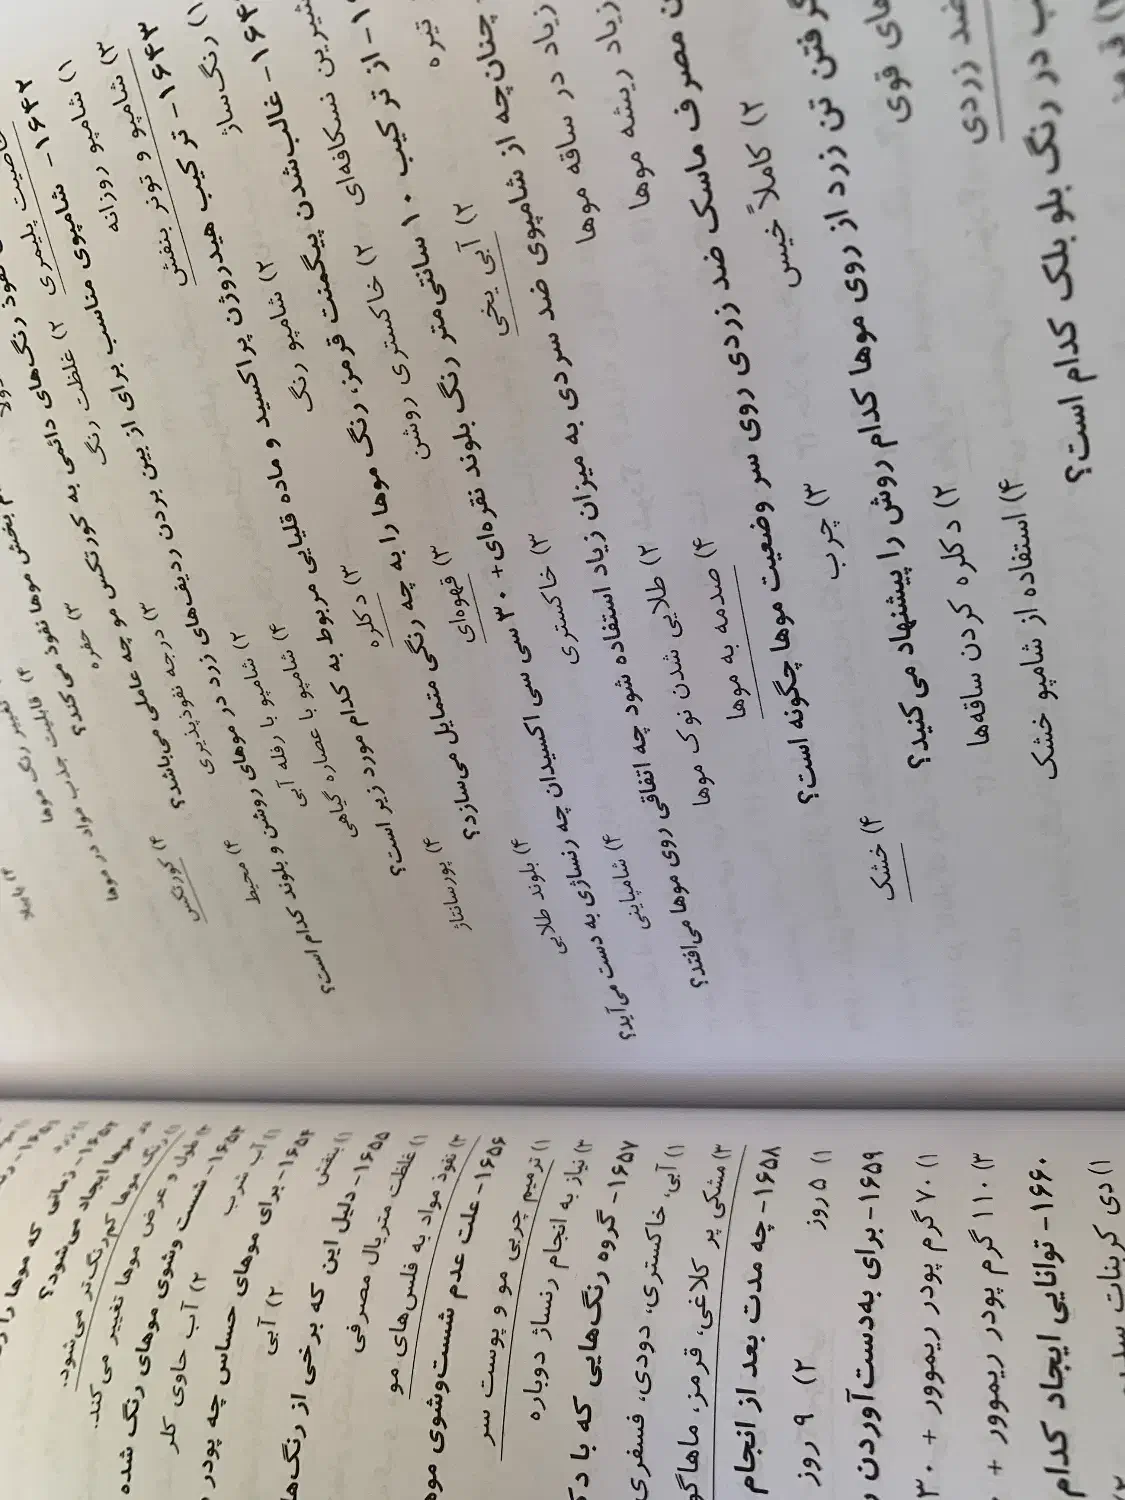 ۴) تغییر رنگ موها
۴) قابلیت جذب مواد در موها
بخش موها نفوذ می‌کند؟
۳) حفره ۴) کورتکس
نفوذ رنگ‌های دائمی به کورتکس مو چه عاملی می‌باشد؟
خاصیت پلیمری ۲) غلظت رنگ ۳) درجه نفوذپذیری ۴) محیط
۱۶۴۲- شامپوی مناسب برای از بین بردن ردیف‌های زرد در موهای روشن و بلوند کدام است؟
۱) شامپو روزانه ۲) شامپو با رفله آبی
۳) شامپو و تونر بنفش ۴) شامپو با عصاره گیاهی
۱۶۴۳- ترکیب هیدروژن پراکسید و ماده قلیایی مربوط به کدام مورد زیر است؟
۱) رنگ‌ساژ ۲) شامپو رنگ ۳) دکلره ۴) پورسانتاژ
۱۶۴- غالب‌شدن پیگمنت قرمز، رنگ موها را به چه رنگی متمایل می‌سازد؟
شیرین نسکافه‌ای ۲) خاکستری روشن ۳) قهوه‌ای ۴) بلوند طلایی
۱- از ترکیب ۱۰ سانتی‌متر رنگ بلوند نقره‌ای + ۳۰ سی سی اکسیدان چه رنساژی به دست می‌آید؟
تیره ۲) آبی یخی ۳) خاکستری ۴) شامپاینی
چنان‌چه از شامپوی ضد سردی به میزان زیاد استفاده شود چه اتفاقی روی موها می‌افتد؟
زیاد در ساقه موها ۲) طلایی شدن نوک موها
زیاد ریشه موها ۴) صدمه به موها
مصرف ماسک ضد زردی روی سر وضعیت موها چگونه است؟
۲) کاملاً خیس ۳) چرب ۴) خشک
رفتن تن زرد از روی موها کدام روش را پیشنهاد می‌کنید؟
های قوی ۲) دکلره کردن ساقه‌ها
ضد زردی ۴) استفاده از شامپو خشک
در رنگ بلو بلک کدام است؟
۱۶۵۲- زمانی که موها را
موها ایجاد می‌شود؟
۱) رنگ موها کم‌رنگ‌تر می‌شود.
۳) طول و عرض موها تغییر می‌کند.
۱۶۵۳- شست وشوی موهای رنگ شده
۱) آب شرب ۲) آب حاوی کلر
۱۶۵۴- برای موهای حساس چه پودر
۱) بنفش ۲) آبی
۱۶۵۵- دلیل این که برخی از رنگ‌ها
۱) غلظت متریال مصرفی
۳) نفوذ مواد به فلس‌های مو
۱۶۵۶- علت عدم شست‌وشوی مو
۱) ترمیم چربی مو و پوست سر
۳) نیاز به انجام رنساژ دوباره
۱۶۵۷- گروه رنگ‌هایی که با
۱) آبی، خاکستری، دودی، فسفری
۳) مشکی پر کلاغی، قرمز، ماهاگو
۱۶۵۸- چه مدت بعد از انجام
۱) ۵ روز ۲) ۹ روز
۱۶۵۹- برای به‌دست‌آوردن
۱) ۷۰ گرم پودر ریموور + ۳۰
۳) ۱۱۰ گرم پودر ریموور +
۱۶۶۰- توانایی ایجاد کدام
۱) دی کربنات